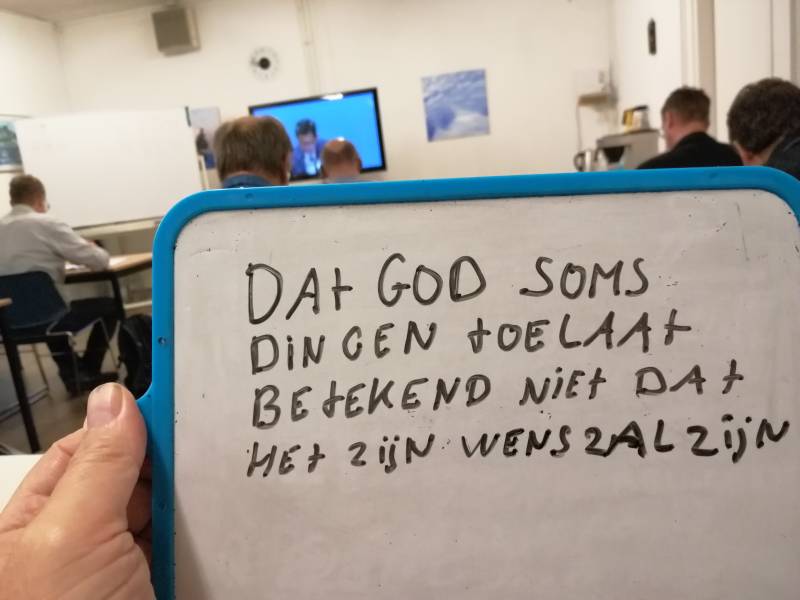 DAt GOD SOMS
DiNGEN tOELAAt
BEtEKEND NiEt DAt
HEt ZijN WENS ZAL ZijN